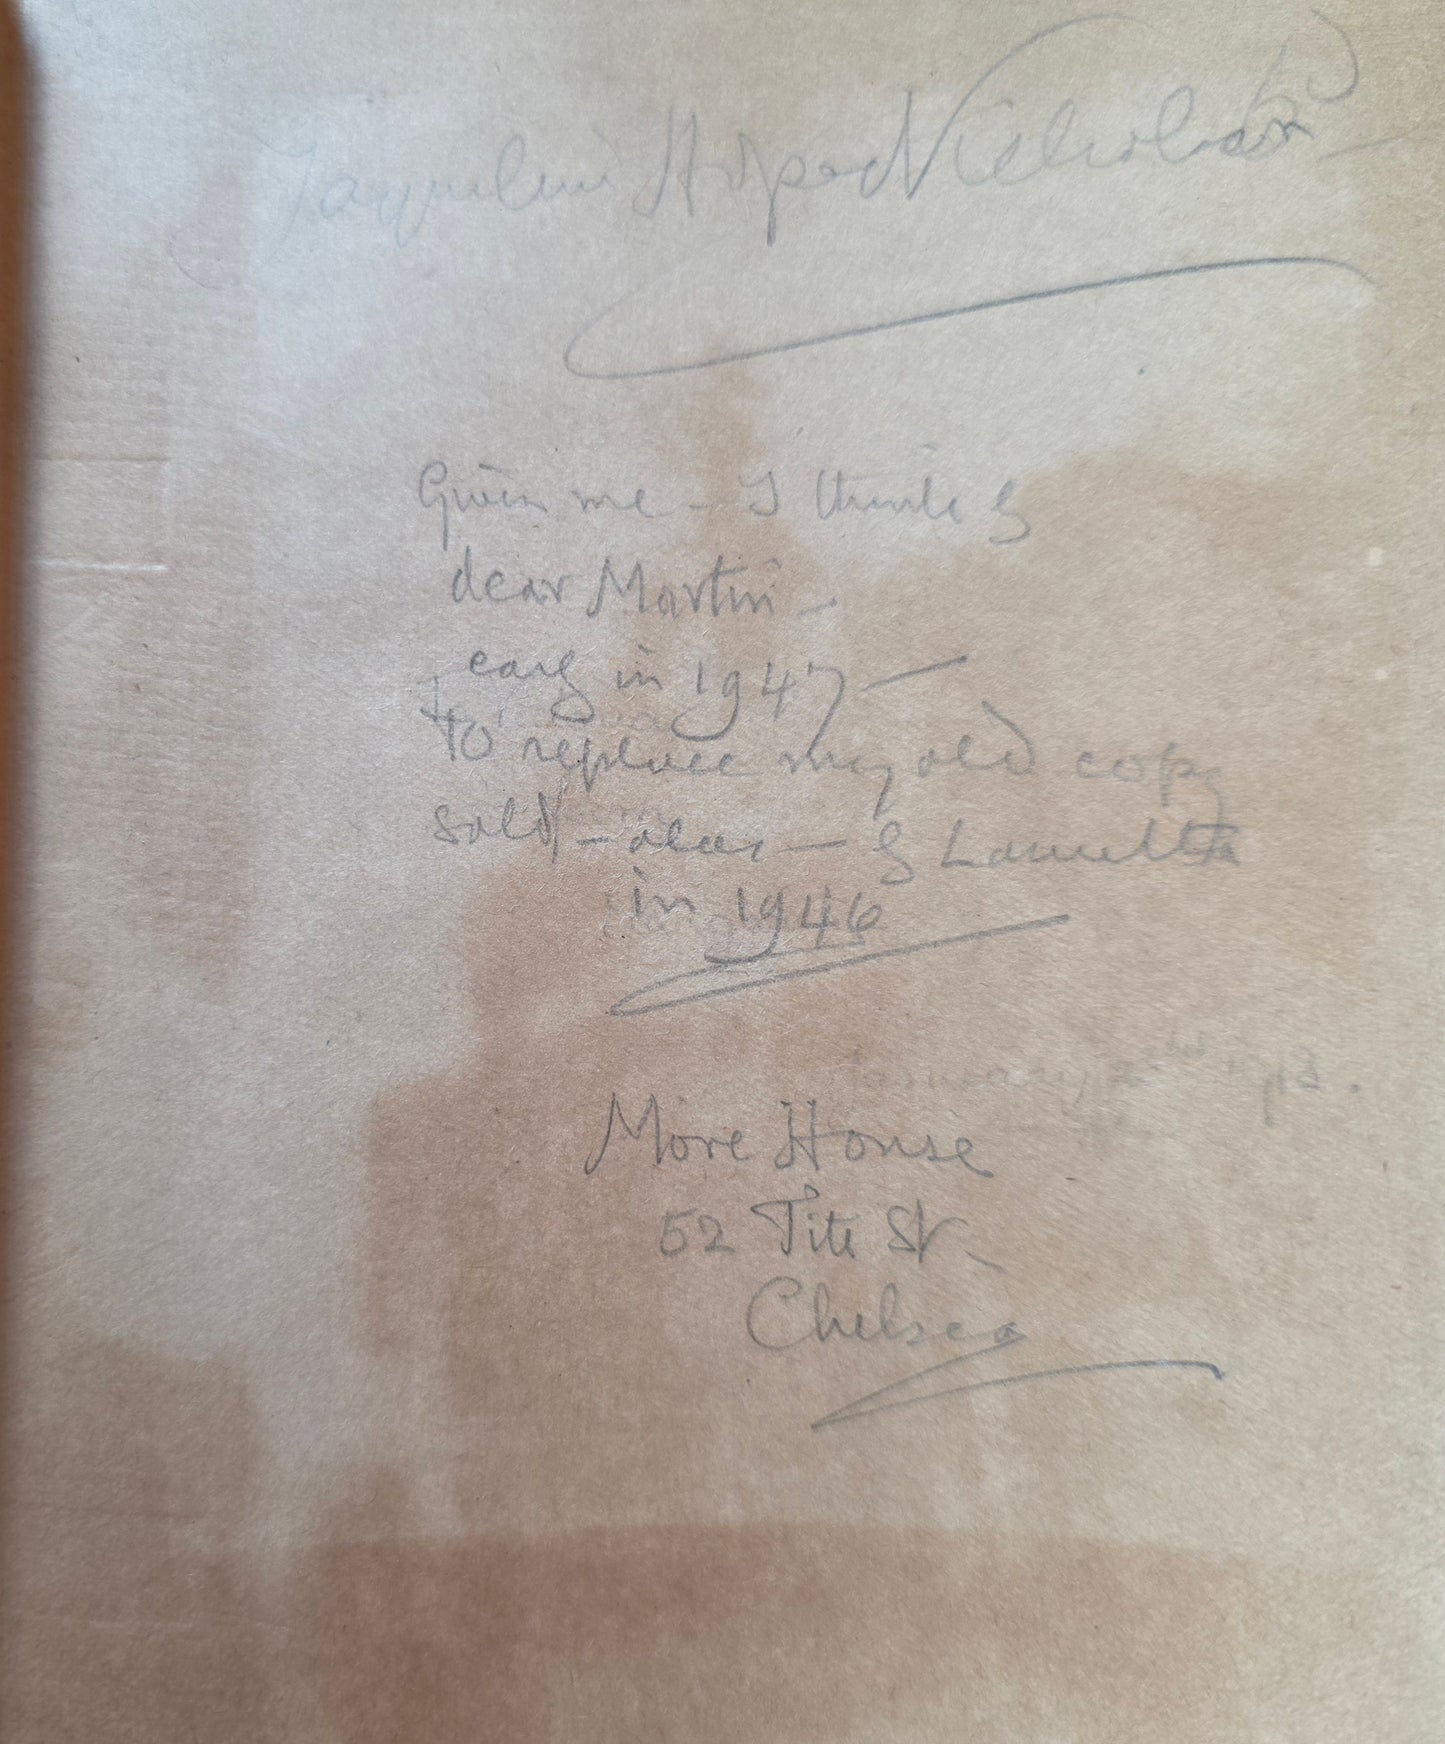 Jacqueline Hope-Nicholson
Given me - I think by
dear Martin -
early in 1947 -
to replace my old copy
sold - alas - by
in 1946
January 2nd
More House
52 Tite St.
Chelsea